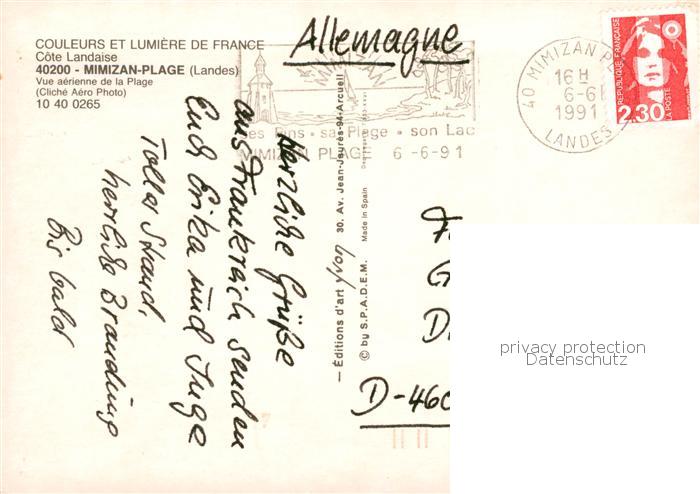 COULEURS ET LUMIÈRE DE FRANCE
Côte Landaise
40200 - MIMIZAN-PLAGE (Landes)
Vue aérienne de la Plage
(Cliché Aéro Photo)
10 40 0265
Allemagne
MIMIZAN
ses Pins - sa Plage - son Lac
MIMIZAN PLAGE 6 -6-91
40 MIMIZAN P
16 H
6-6
1991
LANDES
REPUBLIQUE FRANÇAISE
LA POSTE
2,30
Herzliche Grüße
aus Frankreich senden
Euch Erika und Inge
Toller Strand,
herrliche Brandung
Bis bald
— Éditions d'art yvon 30, Av. Jean-Jaurès-94-Arcueil
© by S.P.A.D.E.M. Made in Spain
F
G
D
D-460
privacy protection
Datenschutz